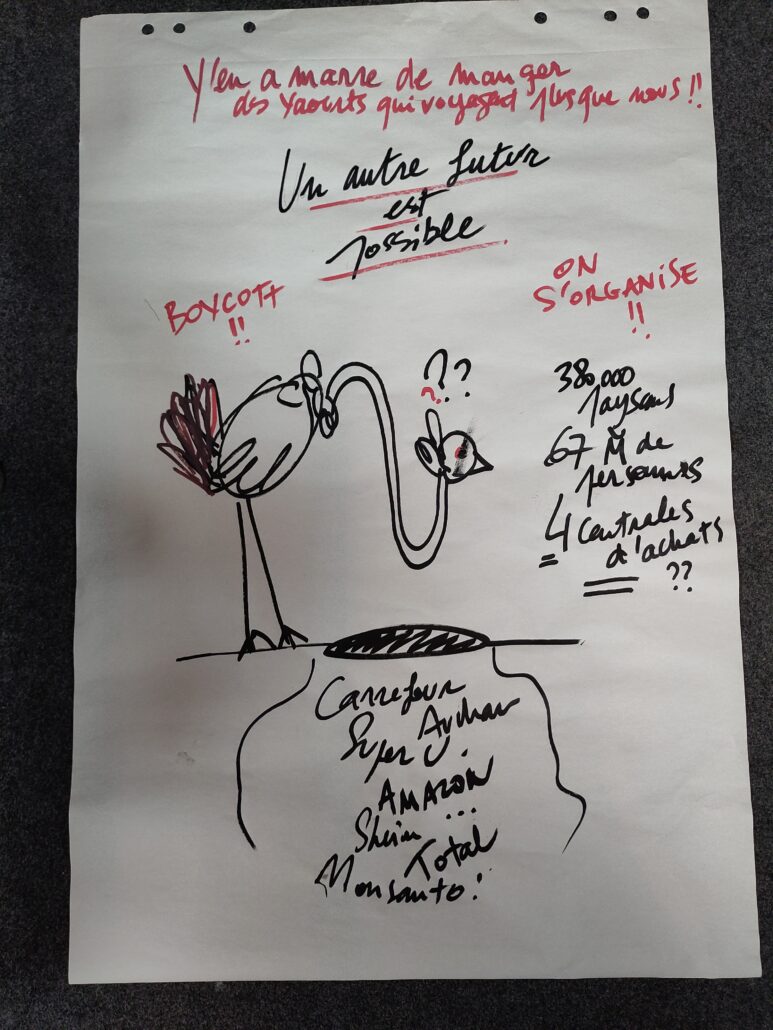 Y'en a marre de manger
des Yaourts qui voyagent plus que nous !!
Un autre futur
est
possible
BOYCOTT
!!
ON
S'ORGANISE
!!
???
380,000
paysans
67 M de
personnes
= 4 centrales
d'achats
??
Carrefour
Auchan
Super U.
AMAZON
Shein ...
Total
Monsanto !